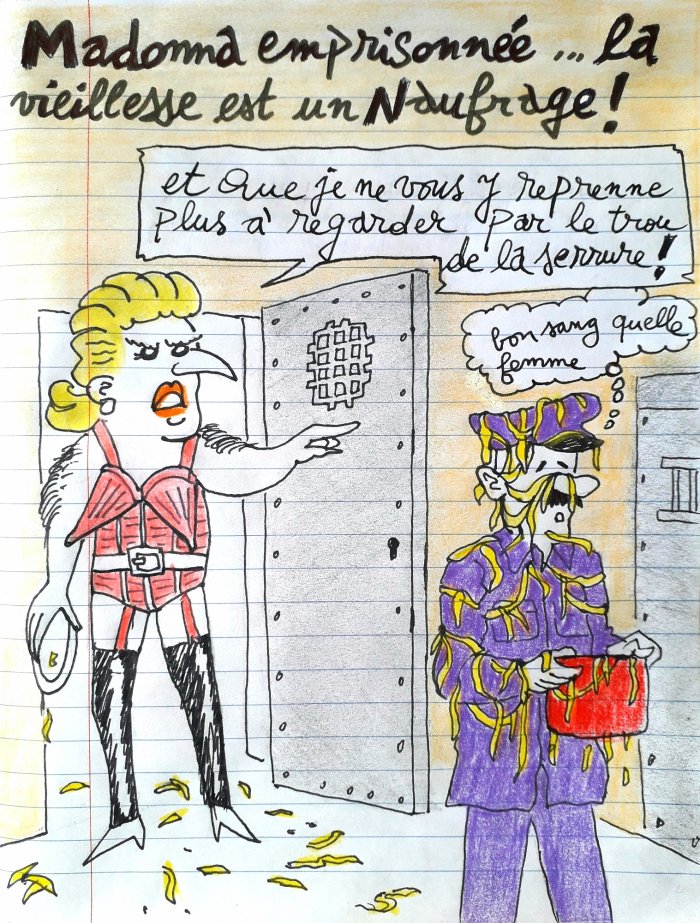 Madonna emprisonnée ... la
vieillesse est un Naufrage !
et que je ne vous y reprenne
plus à regarder par le trou
de la serrure !
bon sang quelle
femme